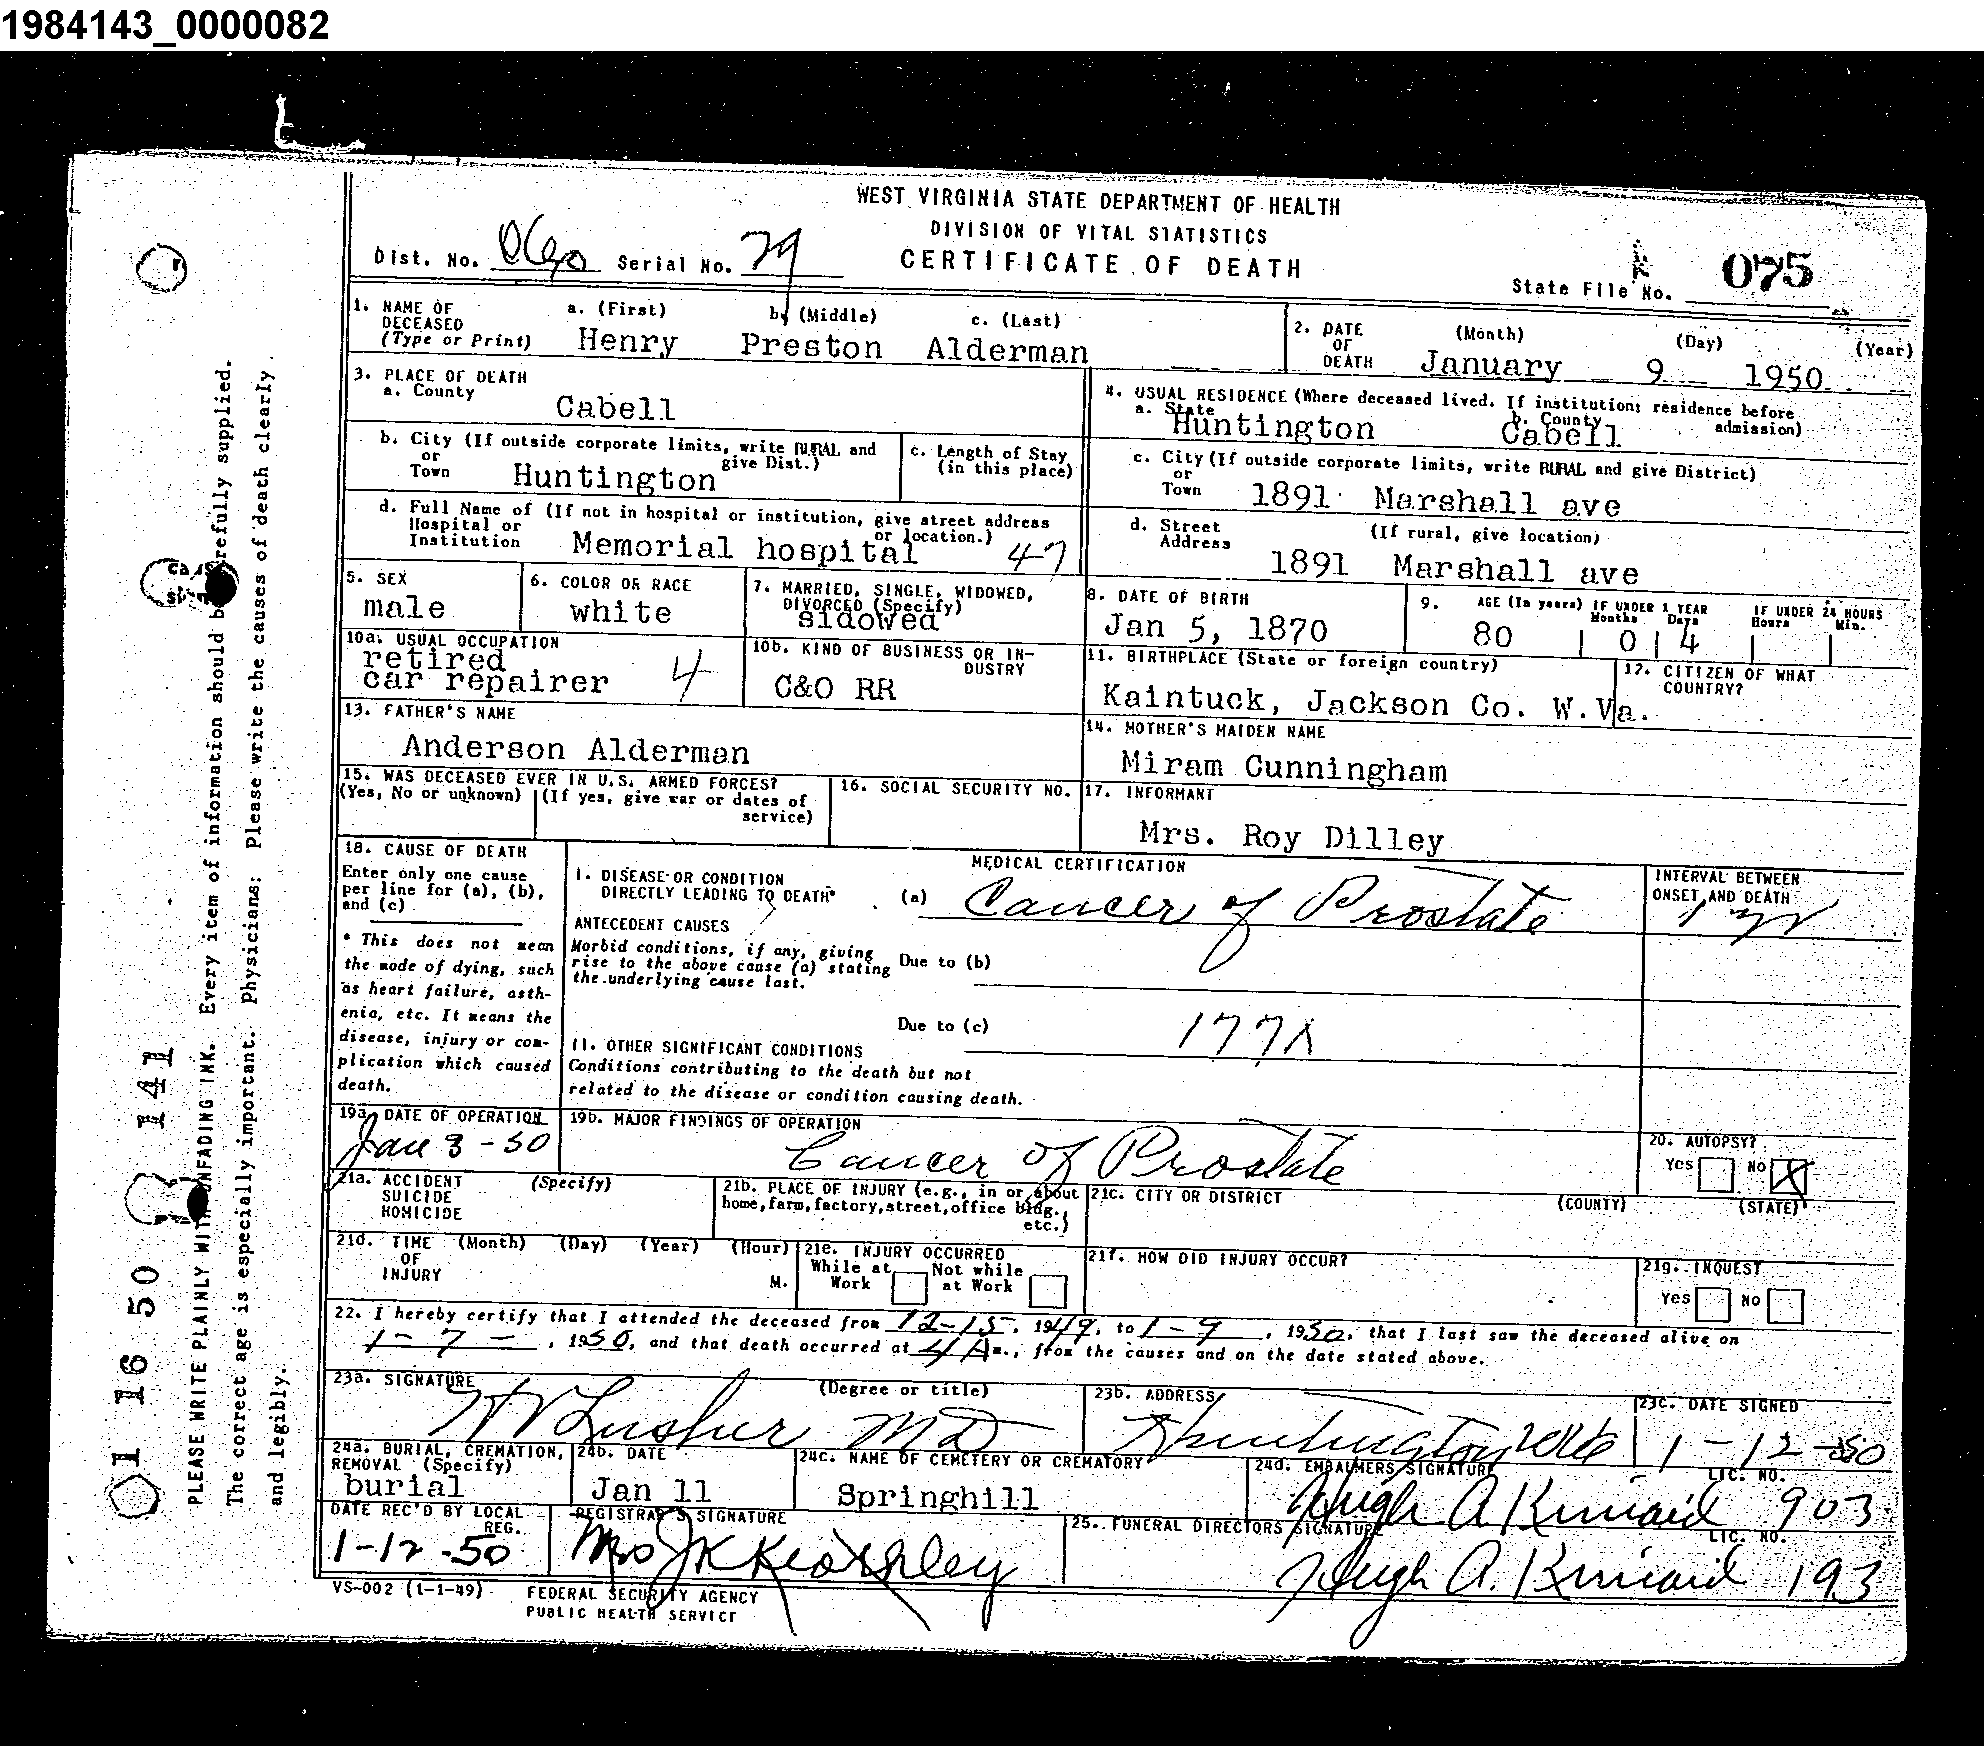 1984143_0000082
WEST VIRGINIA STATE DEPARTMENT OF HEALTH
DIVISION OF VITAL STATISTICS
CERTIFICATE OF DEATH
Dist. No. Serial No. 79
State File No. 075
1. NAME OF DECEASED (Type or Print) a. (First) b. (Middle) c. (Last)
Henry Preston Alderman
2. DATE OF DEATH (Month) (Day) (Year)
January 9 1950
3. PLACE OF DEATH
a. County
Cabell
4. USUAL RESIDENCE (Where deceased lived. If institution: residence before admission)
a. State b. County
Huntington Cabell
b. City (If outside corporate limits, write RURAL and give Dist.)
or Town Huntington
c. Length of Stay (in this place)
c. City (If outside corporate limits, write RURAL and give District)
or Town 1891 Marshall ave
d. Full Name of (If not in hospital or institution, give street address or location.)
Hospital or Institution Memorial hospital 47
d. Street Address (If rural, give location)
1891 Marshall ave
5. SEX
male
6. COLOR OR RACE
white
7. MARRIED, SINGLE, WIDOWED, DIVORCED (Specify)
sidowed
8. DATE OF BIRTH
Jan 5, 1870
9. AGE (In years) IF UNDER 1 YEAR Months Days IF UNDER 24 HOURS Hours Min.
80 0 4
10a. USUAL OCCUPATION
retired
car repairer 4
10b. KIND OF BUSINESS OR INDUSTRY
C&O RR
11. BIRTHPLACE (State or foreign country)
Kaintuck, Jackson Co. W.Va.
12. CITIZEN OF WHAT COUNTRY?
13. FATHER'S NAME
Anderson Alderman
14. MOTHER'S MAIDEN NAME
Miram Cunningham
15. WAS DECEASED EVER IN U.S. ARMED FORCES?
(Yes, No or unknown) (If yes, give war or dates of service)
16. SOCIAL SECURITY NO.
17. INFORMANT
Mrs. Roy Dilley
18. CAUSE OF DEATH
Enter only one cause
per line for (a), (b),
and (c)
* This does not mean
the mode of dying, such
as heart failure, asth-
enia, etc. It means the
disease, injury or com-
plication which caused
death.
MEDICAL CERTIFICATION
I. DISEASE OR CONDITION
DIRECTLY LEADING TO DEATH* (a) Cancer of Prostate
INTERVAL BETWEEN ONSET AND DEATH
1 yr
ANTECEDENT CAUSES
Morbid conditions, if any, giving
rise to the above cause (a) stating
the underlying cause last.
Due to (b)
Due to (c) 177X
II. OTHER SIGNIFICANT CONDITIONS
Conditions contributing to the death but not
related to the disease or condition causing death.
19a. DATE OF OPERATION
Jan 3-50
19b. MAJOR FINDINGS OF OPERATION
Cancer of Prostate
20. AUTOPSY?
Yes No X
21a. ACCIDENT SUICIDE HOMICIDE (Specify)
21b. PLACE OF INJURY (e.g., in or about
home, farm, factory, street, office bldg., etc.)
21c. CITY OR DISTRICT (COUNTY) (STATE)
21d. TIME OF INJURY (Month) (Day) (Year) (Hour) M.
21e. INJURY OCCURRED
While at Work Not while at Work
21f. HOW DID INJURY OCCUR?
21g. INQUEST
Yes No
22. I hereby certify that I attended the deceased from 12-15, 1949, to 1-9, 1950, that I last saw the deceased alive on
1-7-, 1950, and that death occurred at 4 A m., from the causes and on the date stated above.
23a. SIGNATURE (Degree or title)
Lusher MD
23b. ADDRESS
Huntington
23c. DATE SIGNED
1-12-50
24a. BURIAL, CREMATION, REMOVAL (Specify)
burial
24b. DATE
Jan 11
24c. NAME OF CEMETERY OR CREMATORY
Springhill
24d. EMBALMERS SIGNATURE LIC. NO.
Hugh A Kincaid 903
DATE REC'D BY LOCAL REG.
1-12-50
REGISTRAR'S SIGNATURE
Mrs JK Kearsley
25. FUNERAL DIRECTORS SIGNATURE LIC. NO.
Hugh A. Kincaid 193
VS-002 (1-1-49)
FEDERAL SECURITY AGENCY
PUBLIC HEALTH SERVICE
PLEASE WRITE PLAINLY WITH UNFADING INK. Every item of information should be carefully supplied.
The correct age is especially important. Physicians: Please write the causes of death clearly
and legibly.
1 16 50 141